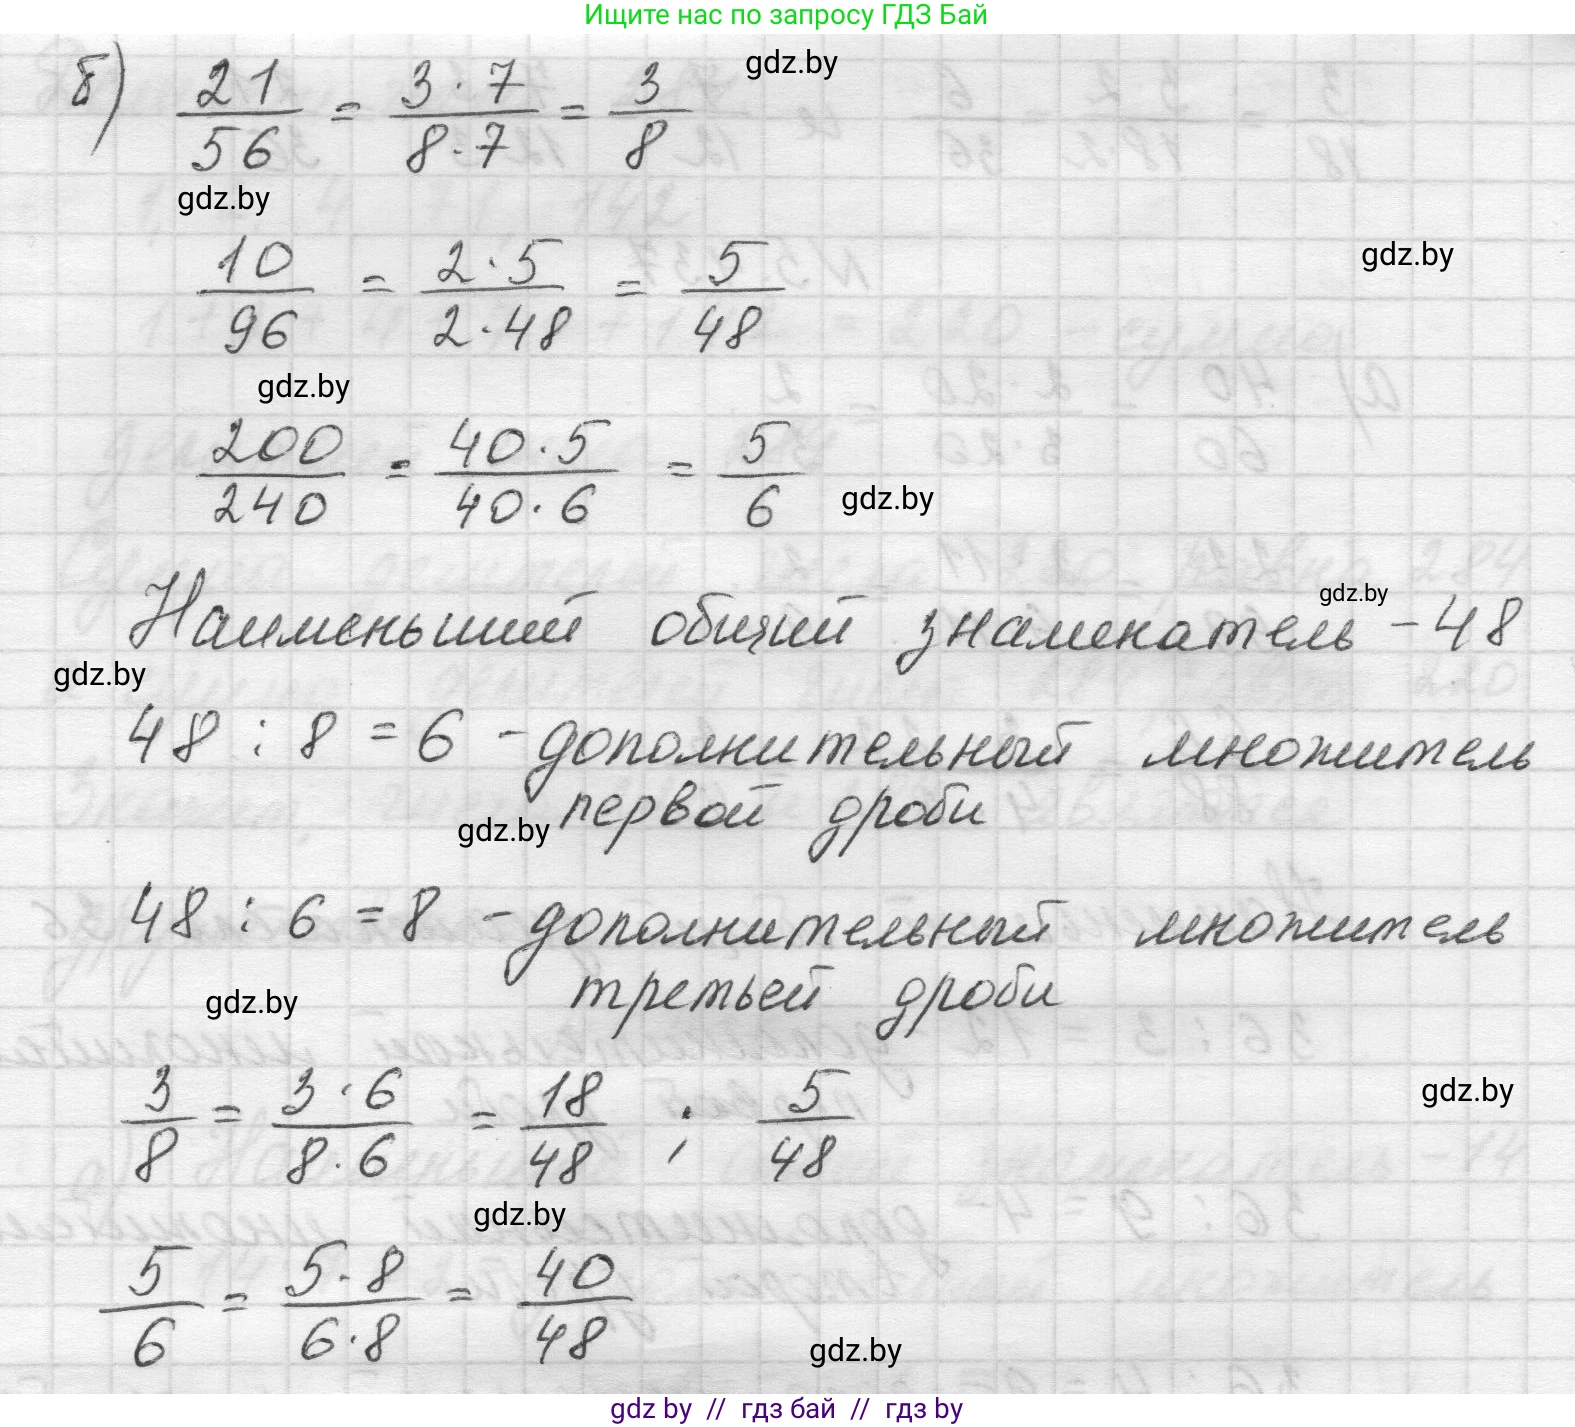 Ищите нас по запросу ГДЗ Бай
б) 21/56 = 3·7/8·7 = 3/8
gdz.by
gdz.by
10/96 = 2·5/2·48 = 5/48
gdz.by
gdz.by
200/240 = 40·5/40·6 = 5/6
gdz.by
Наименьший общий знаменатель - 48
gdz.by
gdz.by
48 : 8 = 6 - дополнительный множитель
первой дроби
gdz.by
48 : 6 = 8 - дополнительный множитель
третьей дроби
gdz.by
3/8 = 3·6/8·6 = 18/48 ; 5/48
gdz.by
gdz.by
5/6 = 5·8/6·8 = 40/48
gdz.by
gdz by // гдз бай // gdz by